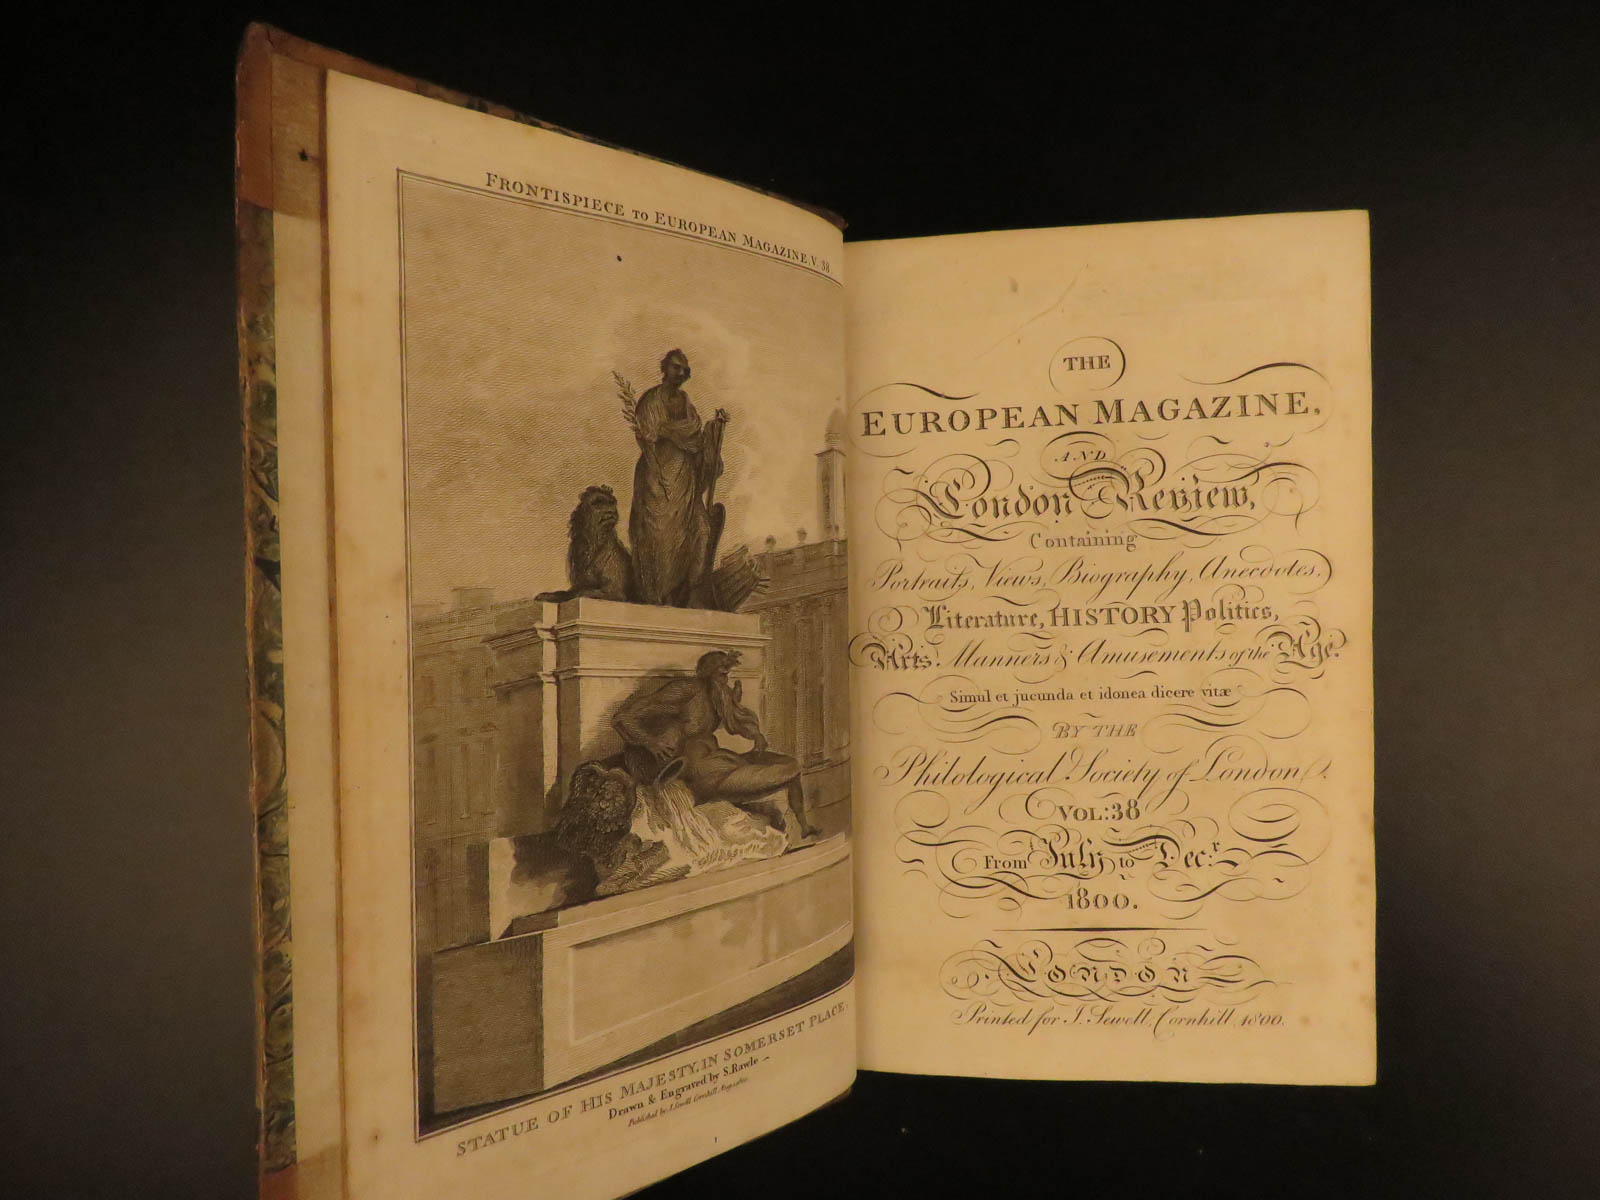 FRONTISPIECE TO EUROPEAN MAGAZINE, V. 38
STATUE OF HIS MAJESTY, IN SOMERSET PLACE.
Drawn & Engraved by S. Rawle
Published by J. Sewell Cornhill
THE
EUROPEAN MAGAZINE,
AND
London Review,
Containing
Portraits, Views, Biography, Anecdotes,
Literature, HISTORY Politics,
Arts. Manners & Amusements of the Age.
Simul et jucunda et idonea dicere vitæ
BY THE
Philological Society of London,
VOL: 38
From July to Decr.
1800.
LONDON
Printed for J. Sewell, Cornhill, 1800.